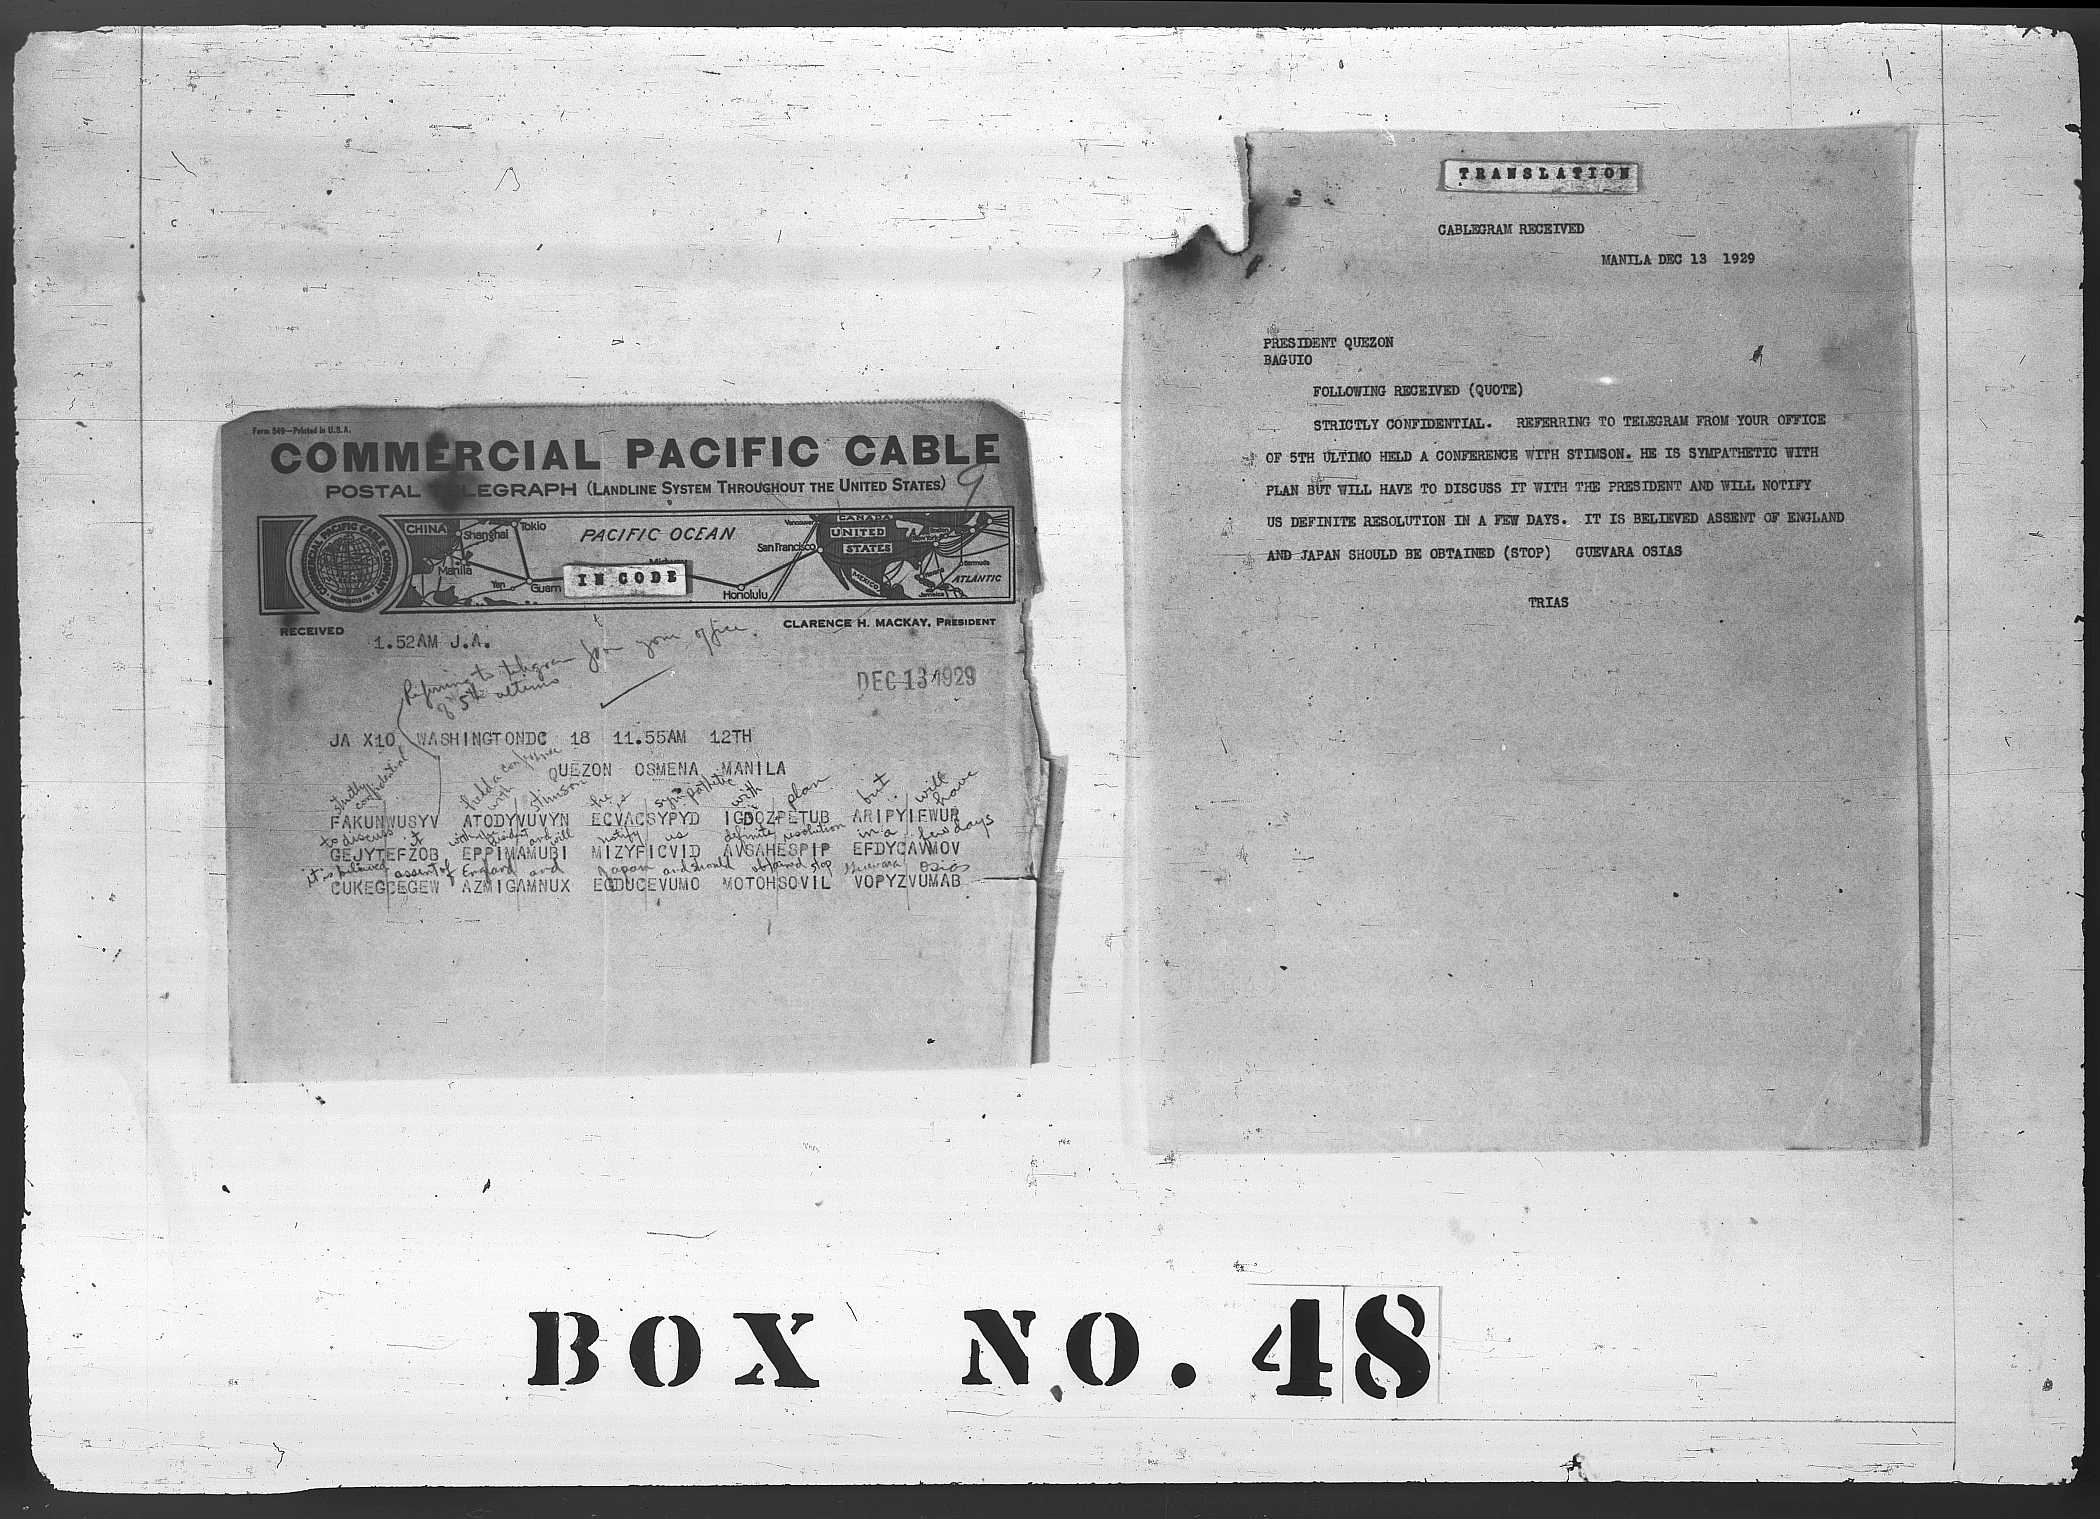 Form 549—Printed in U.S.A.
COMMERCIAL PACIFIC CABLE
POSTAL TELEGRAPH (LANDLINE SYSTEM THROUGHOUT THE UNITED STATES)
9
COMMERCIAL PACIFIC CABLE COMPANY
CHINA
Shanghai
Tokio
Manila
Yap
Guam
PACIFIC OCEAN
IN CODE
Honolulu
San Francisco
Vancouver
CANADA
UNITED
STATES
MEXICO
Bermuda
ATLANTIC
Jamaica
RECEIVED
CLARENCE H. MACKAY, PRESIDENT
1.52AM J.A.
Referring to telegram from your office
of 5th ultimo
DEC 13 1929
JA X10 WASHINGTONDC 18 11.55AM 12TH
QUEZON OSMENA MANILA
strictly confidential held a conference with Stimson he is sympathetic with plan but will have
FAKUNWUSYV ATODYVUVYN ECVACSYPYD IGDOZPETUB ARIPYIFWUR
to discuss it with President and will notify us definite resolution in a few days
GEJYTEFZOB EPPIMAMUBI MIZYFICVID AVSAHESPIP EFDYCAVMOV
it is believed assent of England and Japan and should obtained stop Guevara Osias
CUKEGCEGEW AZMIGAMNUX EGDUCEVUMO MOTOHSOVIL VOPYZVUMAB
TRANSLATION
CABLEGRAM RECEIVED
MANILA DEC 13 1929
PRESIDENT QUEZON
BAGUIO
FOLLOWING RECEIVED (QUOTE)
STRICTLY CONFIDENTIAL. REFERRING TO TELEGRAM FROM YOUR OFFICE
OF 5TH ULTIMO HELD A CONFERENCE WITH STIMSON. HE IS SYMPATHETIC WITH
PLAN BUT WILL HAVE TO DISCUSS IT WITH THE PRESIDENT AND WILL NOTIFY
US DEFINITE RESOLUTION IN A FEW DAYS. IT IS BELIEVED ASSENT OF ENGLAND
AND JAPAN SHOULD BE OBTAINED (STOP) GUEVARA OSIAS
TRIAS
BOX NO. 48